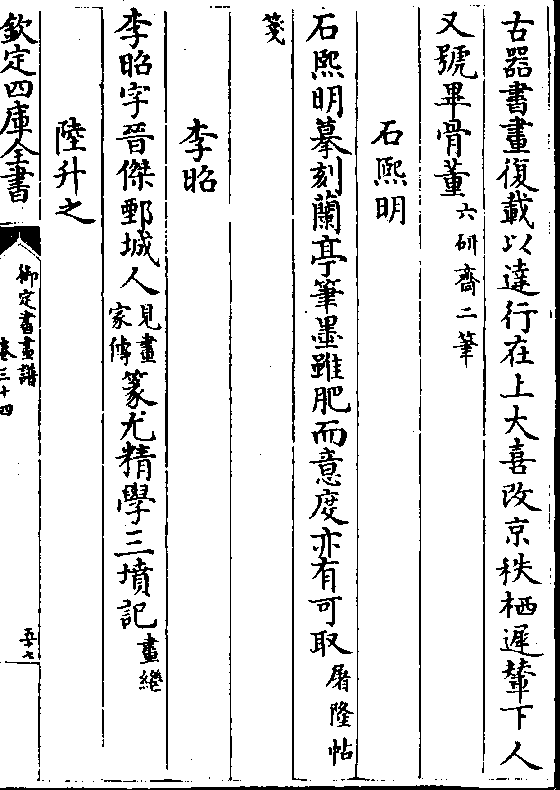 古器書畫復載以達行在上大喜改京秩栖遲輦下人
又號畢骨董六研齋二筆
石熙明
石熙明摹刻蘭亭筆墨雖肥而意度亦有可取屠隆帖
箋
李昭
李昭字晉傑鄄城人見畫家傳篆尤精學三墳記畫繼
陸升之
欽定四庫全書
御定書畫譜
卷三十四